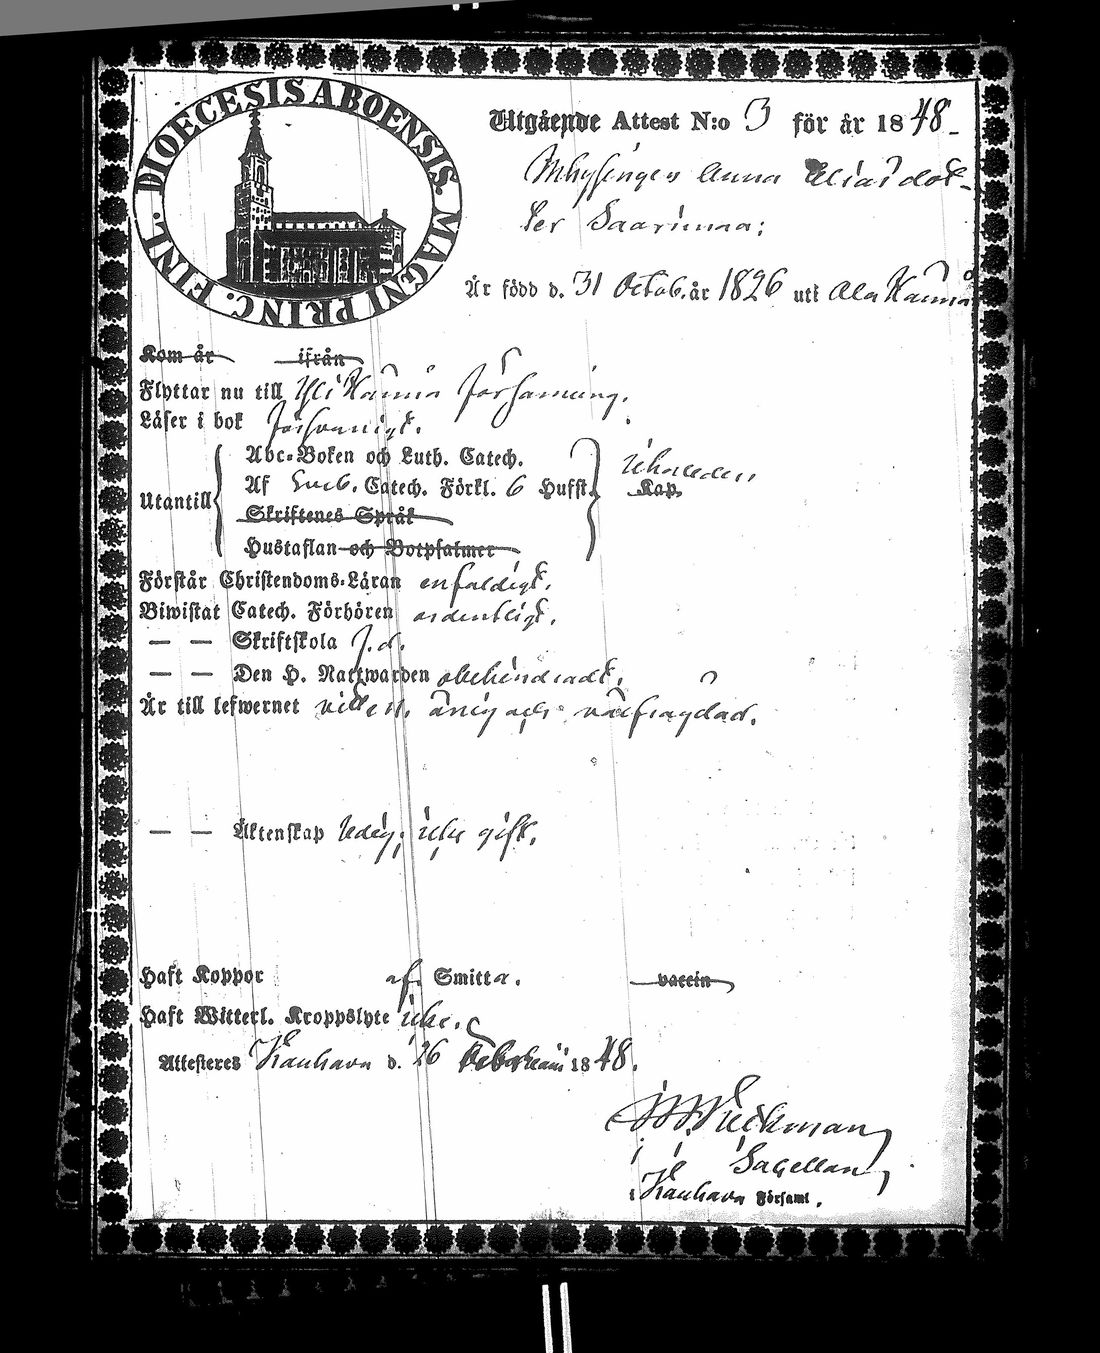 DIOECESIS ABOENSIS. MAGNI PRINC. FINL.
Utgående Attest N:o 3 för år 1848.
Anna Eliasdot-
ter Saarimaa;
Är född d. 31 Octob. år 1826 uti Ala Kauha
Kom år ifrån
Flyttar nu till Församling.
Läser i bok försvarligt.
Abc-Boken och Luth. Catech.
Utantill Af Sveb. Catech. Förkl. 6 Hufst. Kap.
Skriftenes Språk
Hustaflan och Botpsalmer
Förstår Christendoms-Läran enfaldigt.
Biwistat Catech. Förhören ordentligt.
— — Skriftskola J. d.
— — Den H. Nattwarden obehindradt.
Är till lefwernet ärlig och välfrägdad.
— — Äktenskap ledig; icke gift.
Haft Koppor af Smitta. vaccin
Haft Witterl. Kroppslyte icke.
Attesteres Kauhava d. 26 1848.
Sacellan
i Kauhava Församl.